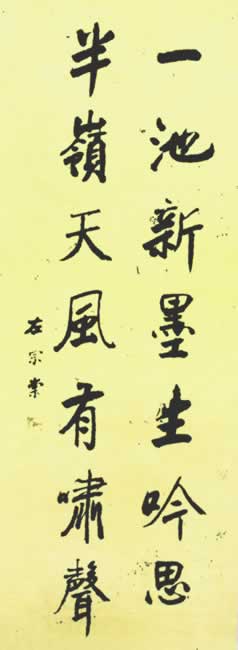 一池新墨生吟思
半嶺天風有嘯聲
左宗棠